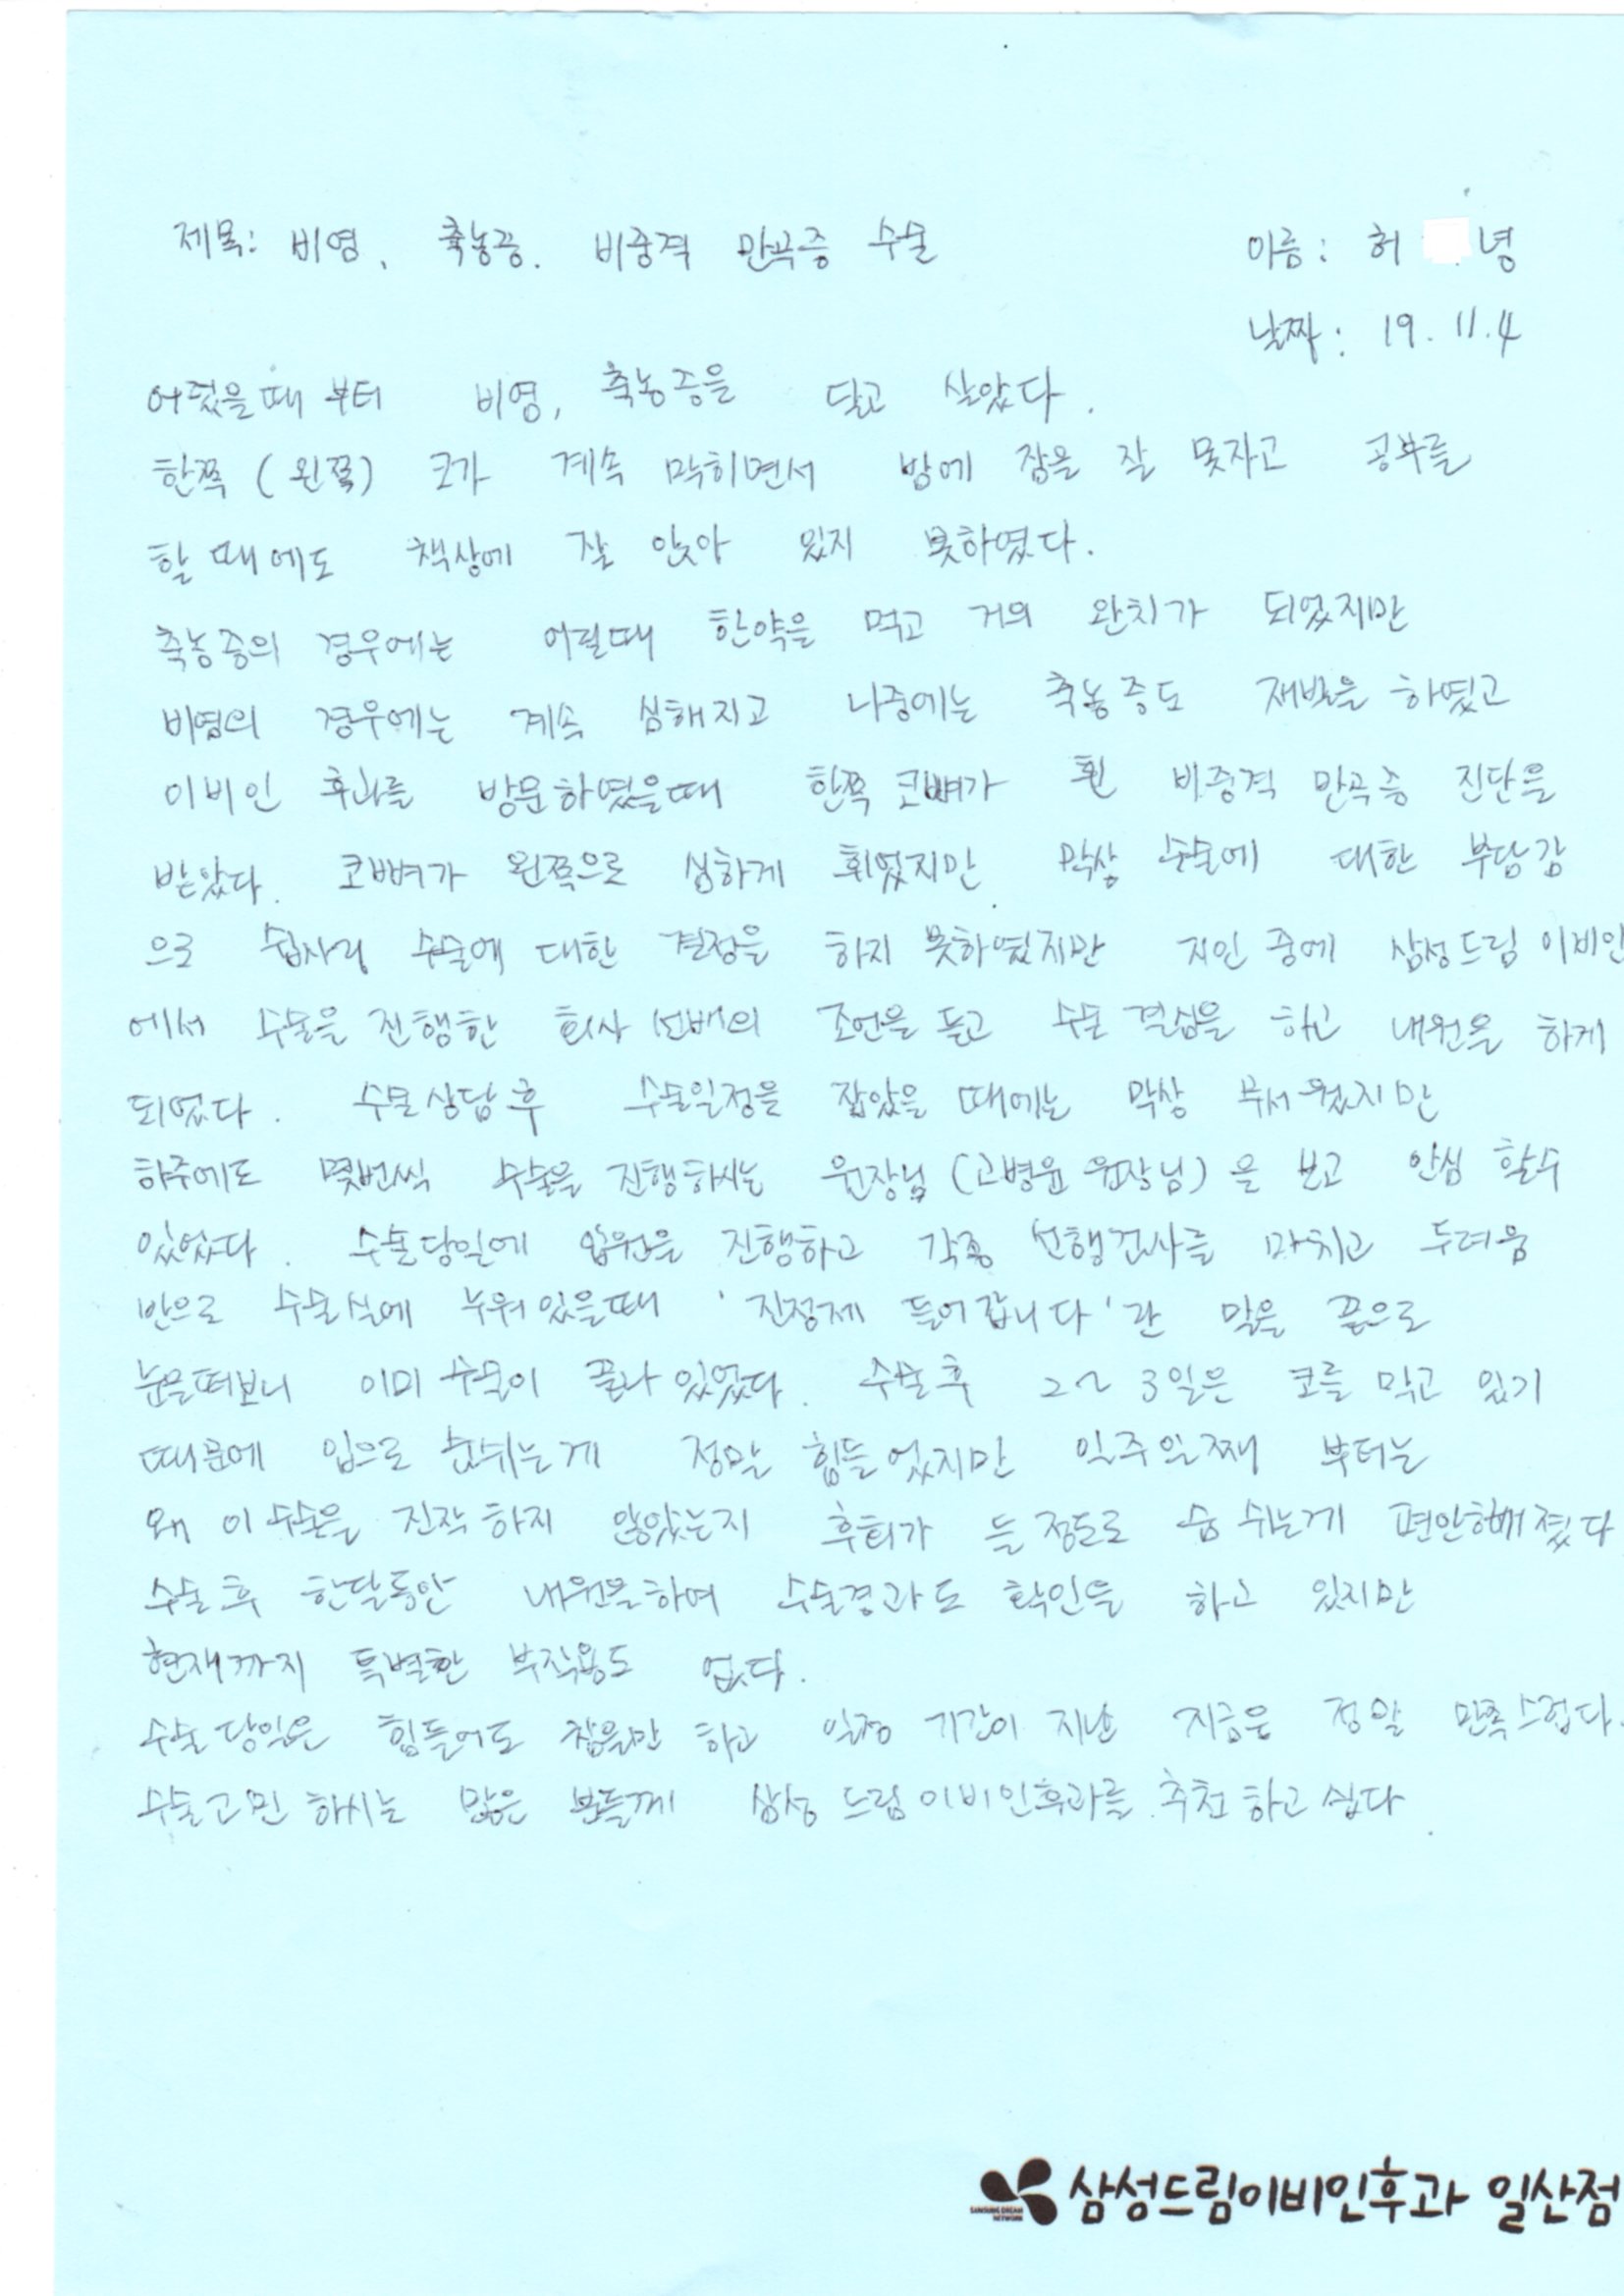 제목: 비염, 축농증. 비중격 만곡증 수술
이름: 허 녕
날짜: 19. 11. 4
어렸을때 부터 비염, 축농증을 달고 살았다.
한쪽 (왼쪽) 코가 계속 막히면서 밤에 잠을 잘 못자고 공부를
할 때에도 책상에 잘 앉아 있지 못하였다.
축농증의 경우에는 어릴때 한약을 먹고 거의 완치가 되었지만
비염의 경우에는 계속 심해지고 나중에는 축농증도 재발을 하였고
이비인 후과를 방문하였을때 한쪽 코뼈가 휜 비중격 만곡증 진단을
받았다. 코뼈가 왼쪽으로 심하게 휘었지만 막상 수술에 대한 부담감
으로 쉽사리 수술에 대한 결정을 하지 못하였지만 지인 중에 삼성드림 이비인
에서 수술을 진행한 회사 선배의 조언을 듣고 수술 결심을 하고 내원을 하게
되었다. 수술상담 후 수술일정을 잡았을 때에는 막상 무서웠지만
하루에도 몇번씩 수술을 진행하시는 원장님 (고병윤 원장님) 을 보고 안심 할수
있었다. 수술당일에 입원을 진행하고 각종 선행검사를 마치고 두려움
반으로 수술실에 누워있을때 '진정제 들어갑니다'란 말을 끝으로
눈을떠보니 이미 수술이 끝나 있었다. 수술후 2~3일은 코를 막고 있기
때문에 입으로 숨쉬는게 정말 힘들었지만 일주일째 부터는
왜 이 수술을 진작 하지 않았는지 후회가 들 정도로 숨 쉬는게 편안해졌다
수술 후 한달동안 내원을하여 수술경과도 확인을 하고 있지만
현재까지 특별한 부작용도 없다.
수술 당일은 힘들어도 참을만 하고 일정 기간이 지난 지금은 정말 만족스럽다.
수술고민 하시는 많은 분들께 삼성 드림 이비인후과를 추천 하고 싶다
삼성드림이비인후과 일산점